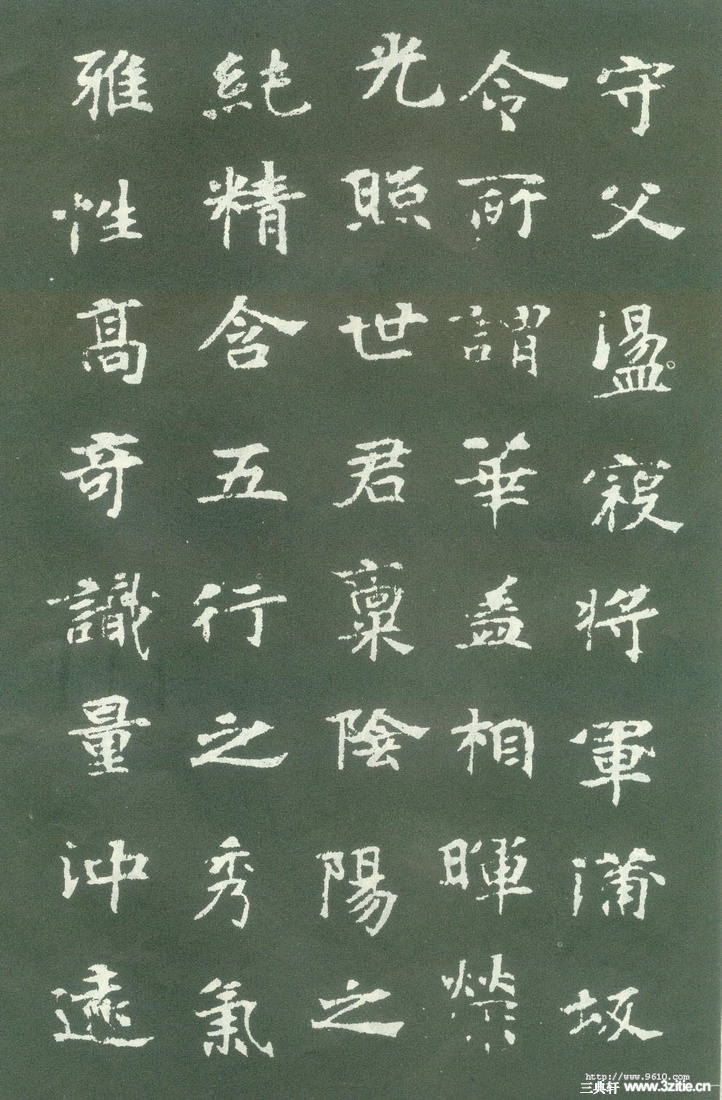 守父盪寇將軍蒲坂
令所謂華蓋相暉榮
光照世君稟陰陽之
純精含五行之秀氣
雅性高奇識量沖遠
http://www.9610.com
三典轩 www.3zitie.cn